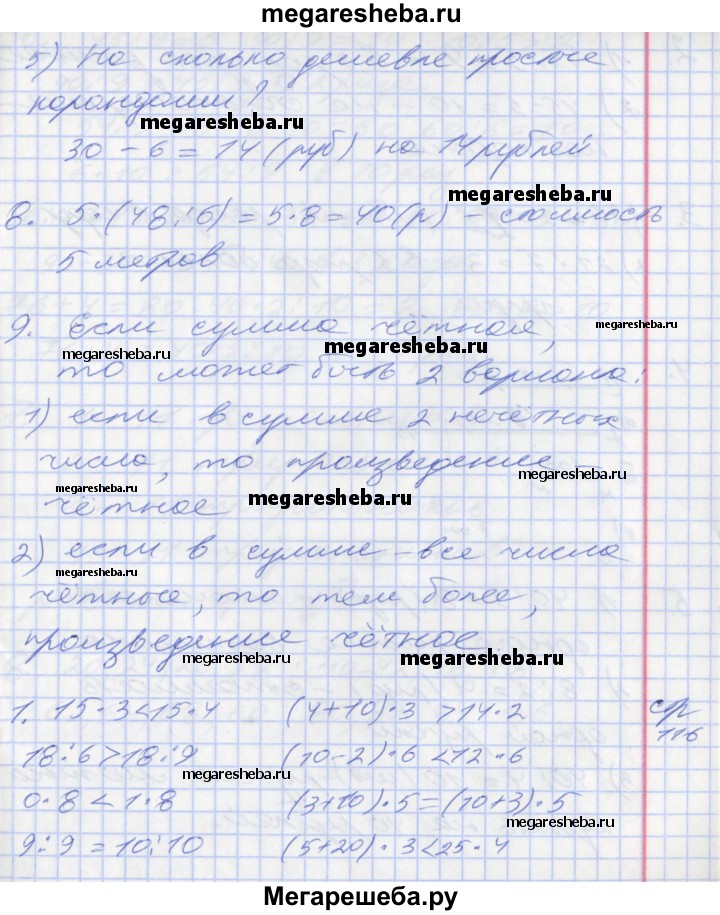 megaresheba.ru
5) На сколько дешевле простые
карандаши?
megaresheba.ru
30 - 6 = 14 (руб) на 14 рублей
megaresheba.ru
megaresheba.ru
8. 5·(48:6) = 5·8 = 40(р) – стоимость
5 метров
9. Если сумма чётная,
megaresheba.ru
megaresheba.ru
megaresheba.ru
то может быть 2 вариана:
1) если в сумме 2 нечётных
числа, то произведение –
megaresheba.ru
megaresheba.ru
чётное
megaresheba.ru
2) если в сумме – все числа
megaresheba.ru
чётные, то тем более,
произведение чётное
megaresheba.ru
megaresheba.ru
1. 15·3<15·4 (4+10)·3 >14·2 стр
116
18:6>18:9 (10-2)·6 <12·6
megaresheba.ru
0·8 <1·8 (3+10)·5=(10+3)·5
megaresheba.ru
9:9 = 10:10 (5+20)·3<25·4
Мегарешеба.ру